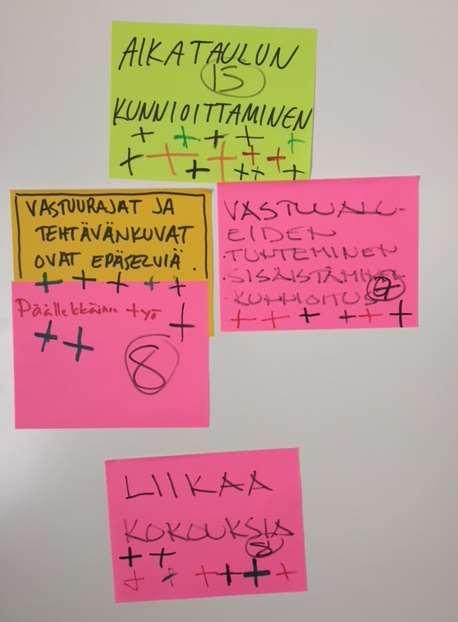 AIKATAULUN
15
KUNNIOITTAMINEN
VASTUURAJAT JA
TEHTÄVÄNKUVAT
OVAT EPÄSELVIÄ
VASTUUALU-
EIDEN
· TUNTEMINEN
· SISÄISTÄMINEN
· KUNNIOITUS 7
Päällekkäinen työ
8
LIIKAA
KOKOUKSIA
8